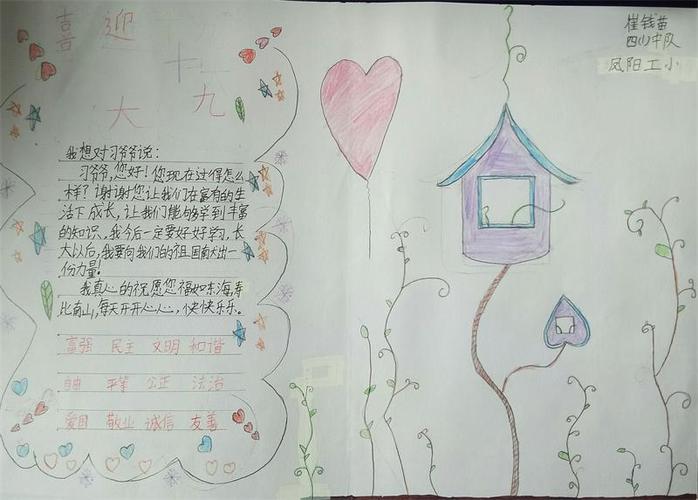 喜迎
十九
大
崔钱苗
四(1)中队
凤阳工小
我想对习爷爷说：
习爷爷，您好！您现在过得怎么
样？谢谢您让我们在富有的生
活下成长，让我们能够学到丰富
的知识，我今后一定要好好学习，长
大以后，我要向我们的祖国献出一
份力量！
我真心的祝愿您福如东海，寿
比南山，每天开开心心，快快乐乐。
富强 民主 文明 和谐
自由 平等 公正 法治
爱国 敬业 诚信 友善